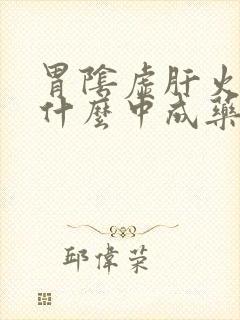 胃陰虛肝火
什麼中成藥
邱偉荣